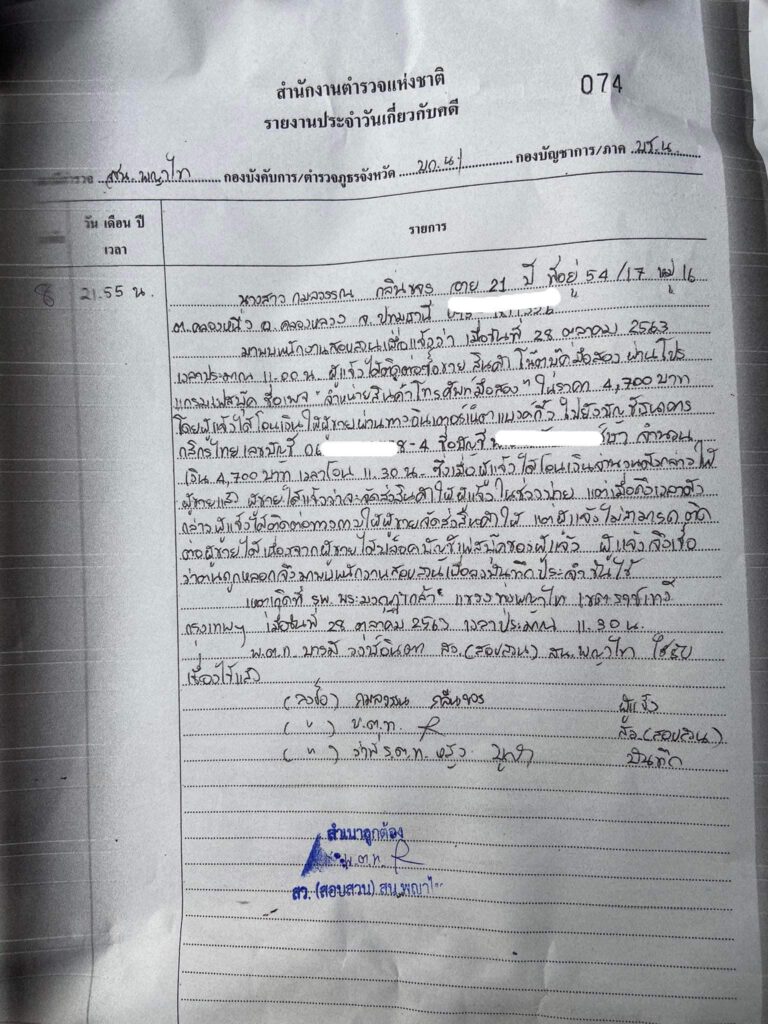 สำนักงานตำรวจแห่งชาติ
074
รายงานประจำวันเกี่ยวกับคดี
สน. พญาไท กองบังคับการ/ตำรวจภูธรจังหวัด บก.น.1 กองบัญชาการ/ภาค บช.น.
วัน เดือน ปี
เวลา
รายการ
8 21.55 น. นางสาว กมลวรรณ กลิ่นขจร อายุ 21 ปี ที่อยู่ 54/17 หมู่ 16
ต.คลองหนึ่ง อ.คลองหลวง จ.ปทุมธานี
มาพบพนักงานสอบสวนเพื่อแจ้งว่า เมื่อวันที่ 28 ตุลาคม 2563
เวลาประมาณ 11.00 น. ผู้แจ้งได้ติดต่อซื้อขาย สินค้า โน๊ตบุ๊คมือสอง ผ่านโปร
แกรมเฟสบุ๊ค ชื่อเพจ "จำหน่ายสินค้าโทรศัพท์มือสอง" ในราคา 4,700 บาท
โดยผู้แจ้งได้โอนเงินให้ผู้ขายผ่านทางอินเตอร์เน็ตแบงค์กิ้ง ไปยังบัญชีธนาคาร
กสิกรไทย เลขบัญชี 8-4 ชื่อบัญชี จำนวน
เงิน 4,700 บาท เวลาโอน 11.30 น. ซึ่งเมื่อผู้แจ้งได้โอนเงินจำนวนดังกล่าวให้
ผู้ขายแล้ว ผู้ขายได้แจ้งว่าจะจัดส่งสินค้าให้ผู้แจ้งในช่วงบ่าย แต่เมื่อถึงเวลาดัง
กล่าวผู้แจ้งได้ติดต่อทวงถามให้ผู้ขายจัดส่งสินค้าให้ แต่ผู้แจ้งไม่สามารถติด
ต่อผู้ขายได้เนื่องจากผู้ขายได้บล็อคบัญชีเฟสบุ๊คของผู้แจ้ง ผู้แจ้งจึงเชื่อ
ว่าตนถูกหลอกจึงมาพบพนักงานสอบสวนเพื่อลงบันทึกประจำวันไว้
เหตุเกิดที่ รพ. พระมงกุฎเกล้าฯ แขวงทุ่งพญาไท เขตราชเทวี
กรุงเทพฯ เมื่อวันที่ 28 ตุลาคม 2563 เวลาประมาณ 11.30 น.
พ.ต.ท. สว.(สอบสวน) สน.พญาไท ได้รับ
เรื่องไว้แล้ว
(ลงชื่อ) กมลวรรณ กลิ่นขจร ผู้แจ้ง
( " ) พ.ต.ท. สว.(สอบสวน)
( " ) ว่าที่ ร.ต.ท. บันทึก
สำเนาถูกต้อง
พ.ต.ท.
สว. (สอบสวน) สน.พญาไท